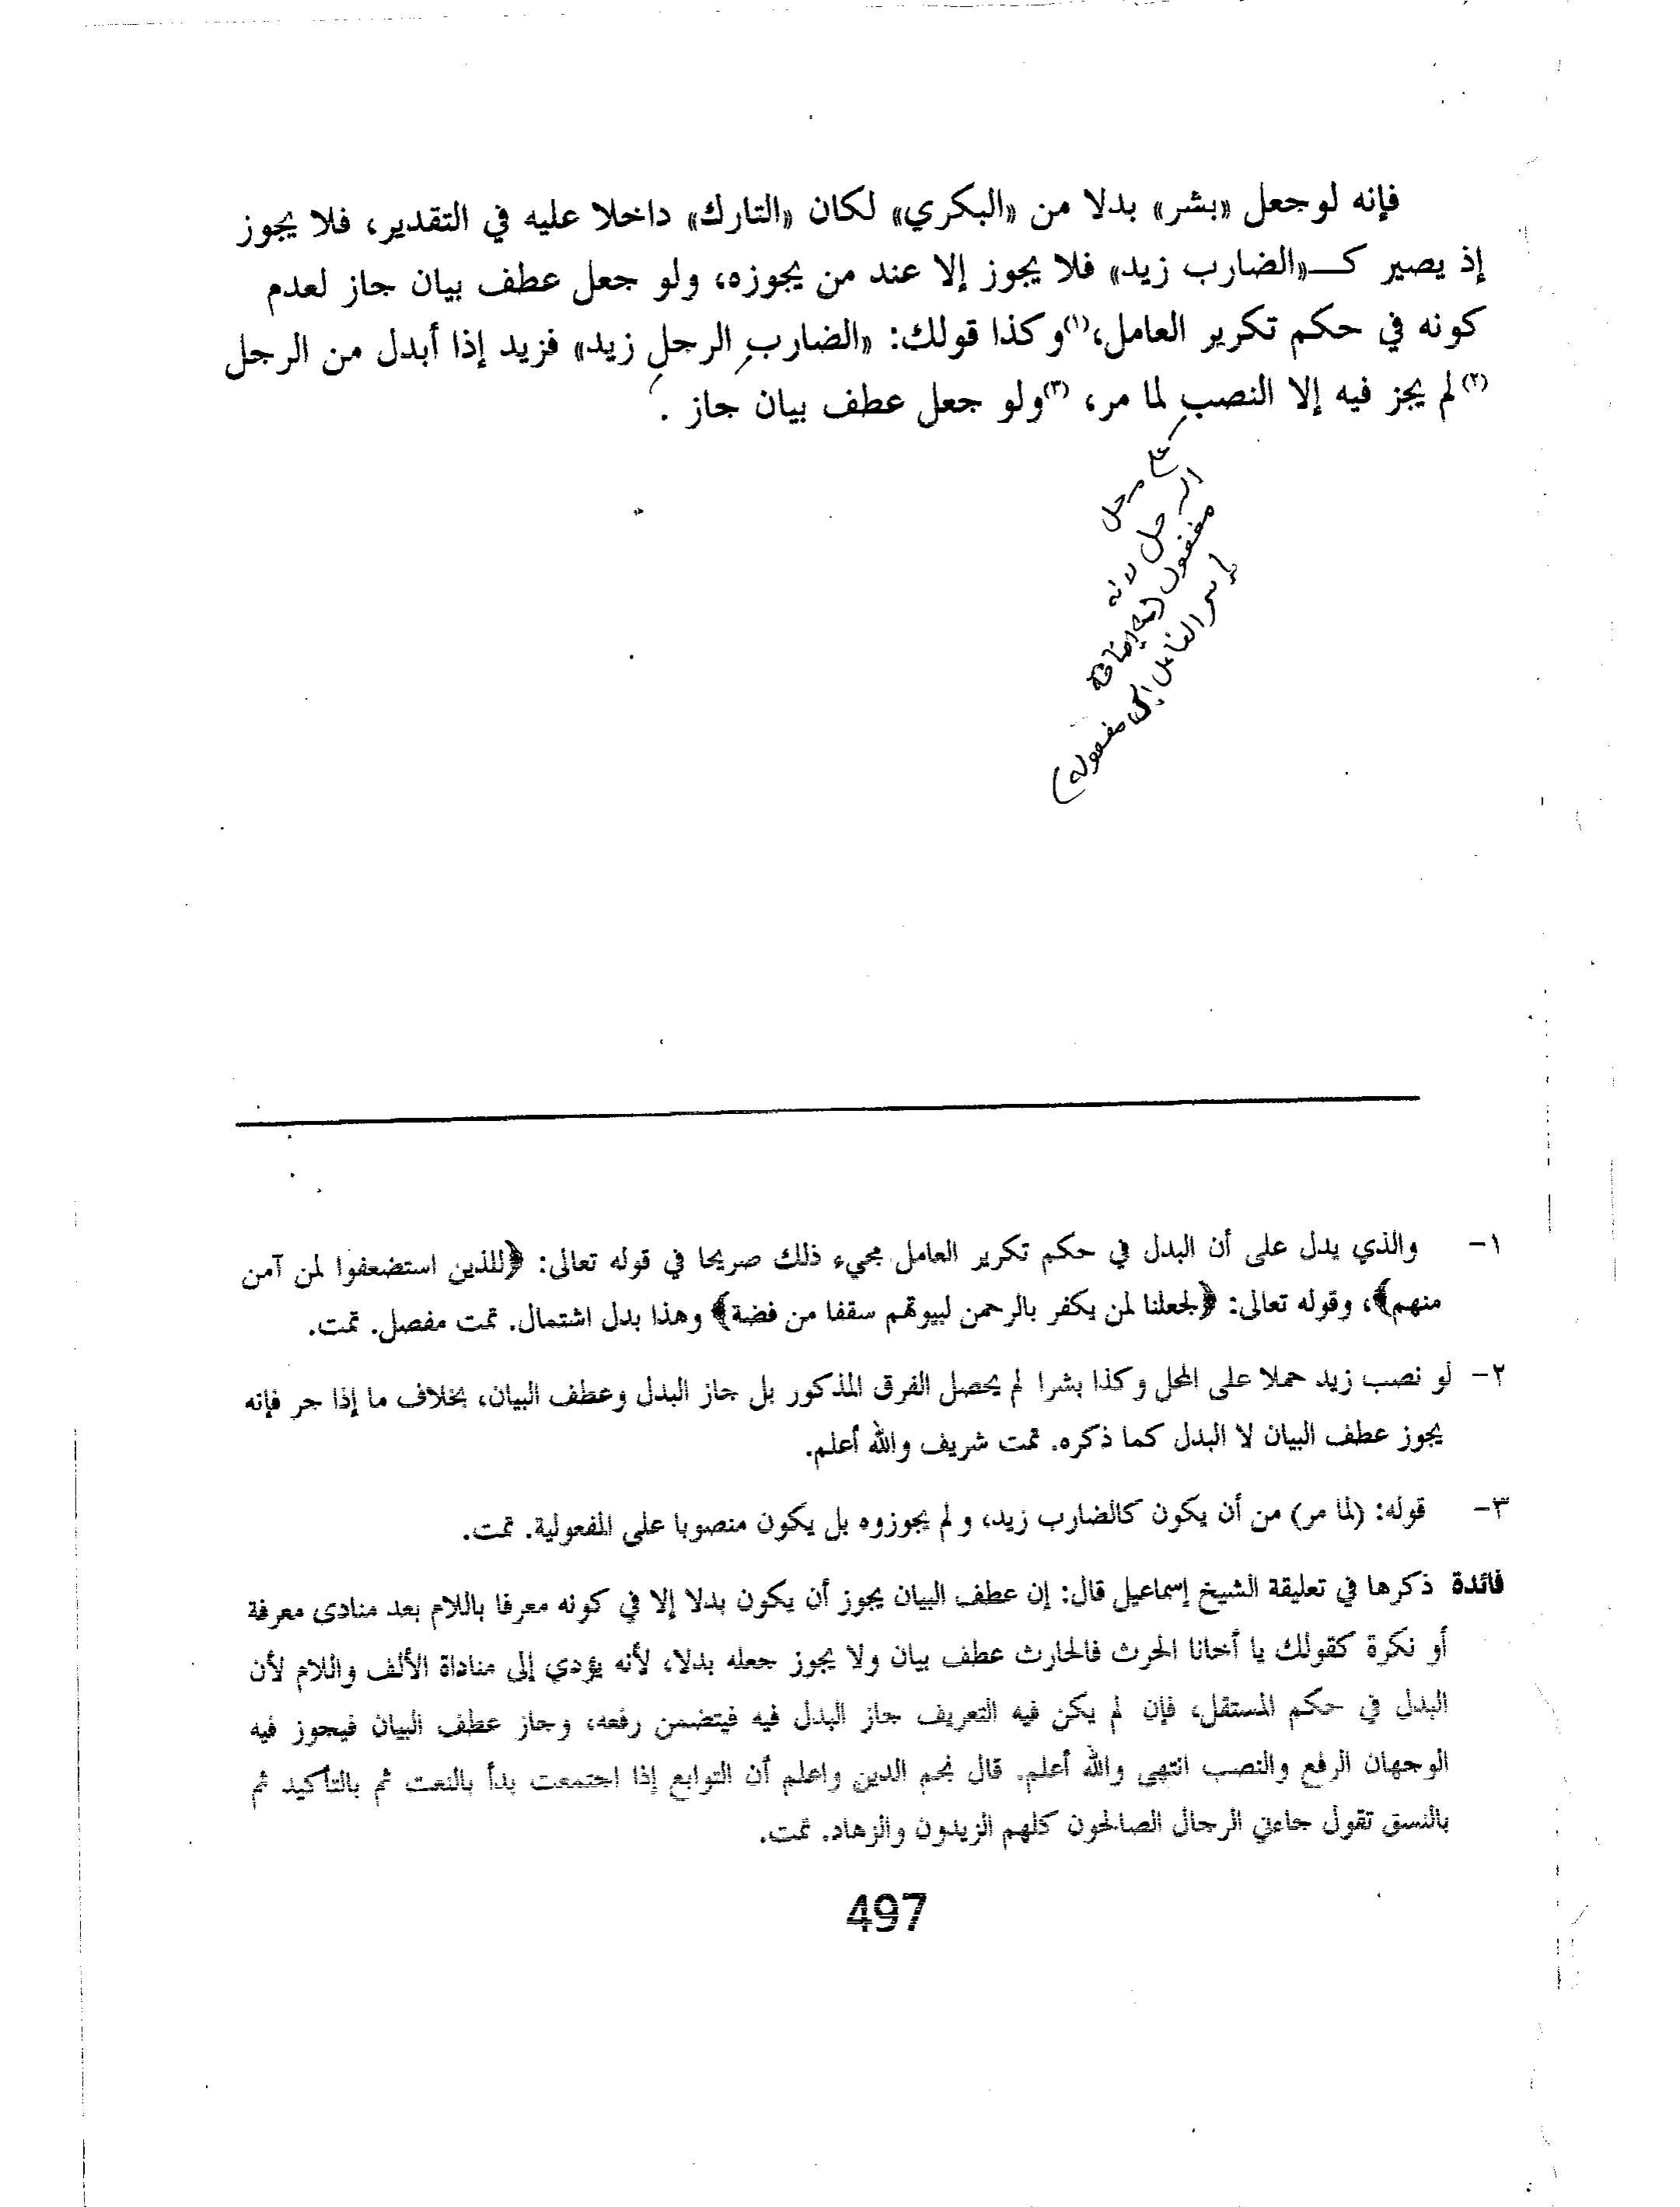 فإنه لو جعل «بشر» بدلا من «البكري» لكان «التارك» داخلا عليه في التقدير، فلا يجوز
إذ يصير كـ«الضارب زيد» فلا يجوز إلا عند من يجوزه، ولو جعل عطف بيان جاز لعدم
كونه في حكم تكرير العامل،(١) وكذا قولك: «الضاربِ الرجلِ زيد» فزيد إذا أبدل من الرجل
(٢) لم يجز فيه إلا النصب لما مر، (٣) ولو جعل عطف بيان جاز .
محل
الرجل لانه
مفعول
اسم الفاعل إلى مفعوله)
١- والذي يدل على أن البدل في حكم تكرير العامل مجيء ذلك صريحا في قوله تعالى: ﴿للذين استضعفوا لمن آمن
منهم﴾، وقوله تعالى: ﴿لجعلنا لمن يكفر بالرحمن لبيوتهم سقفا من فضة﴾ وهذا بدل اشتمال. تمت مفصل. تمت.
٢- لو نصب زيد حملا على المحل وكذا بشرا لم يحصل الفرق المذكور بل جاز البدل وعطف البيان، بخلاف ما إذا جر فإنه
يجوز عطف البيان لا البدل كما ذكره. تمت شريف والله أعلم.
٣- قوله: (لما مر) من أن يكون كالضارب زيد، ولم يجوزوه بل يكون منصوبا على المفعولية. تمت.
فائدة ذكرها في تعليقة الشيخ إسماعيل قال: إن عطف البيان يجوز أن يكون بدلا إلا في كونه معرفا باللام بعد منادى معرفة
أو نكرة كقولك يا أخانا الحرث فالحارث عطف بيان ولا يجوز جعله بدلا، لأنه يؤدي إلى مناداة الألف واللام لأن
البدل في حكم المستقل، فإن لم يكن فيه التعريف جاز البدل فيه فيتضمن رفعه، وجاز عطف البيان فيجوز فيه
الوجهان الرفع والنصب انتهى والله أعلم. قال نجم الدين واعلم أن التوابع إذا اجتمعت بدأ بالنعت ثم بالتأكيد ثم
بالنسق تقول جاءني الرجال الصالحون كلهم الزيدون والزهاد. تمت.
497